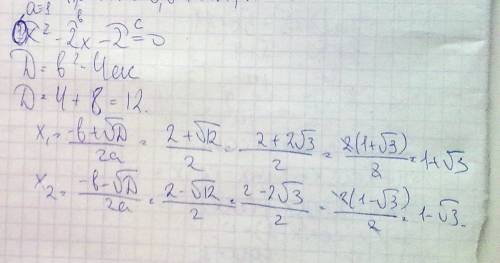 a=1 в с
① x² - 2x - 2 = 0
D = в² - 4ac
D = 4 + 8 = 12.
x₁ = (-в+√D)/2a = (2+√12)/2 = (2+2√3)/2 = 2(1+√3)/2 = 1+√3
x₂ = (-в-√D)/2a = (2-√12)/2 = (2-2√3)/2 = 2(1-√3)/2 = 1-√3.